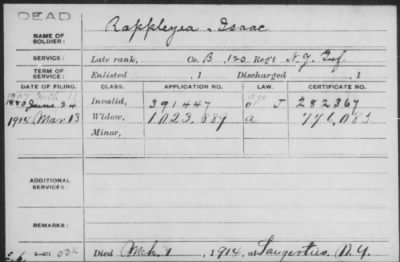 DEAD
NAME OF SOLDIER: Rappleyea, Isaac
SERVICE: Late rank, Co. B, 120 Reg't N.Y. Inf.
TERM OF SERVICE: Enlisted , 1 Discharged , 1
DATE OF FILING. CLASS. APPLICATION NO. LAW. CERTIFICATE NO.
1880 June 24 Invalid, 391447 J 282367
1914 Mar. 13 Widow, 1.023.889 a 776.083
Minor,
ADDITIONAL SERVICES:
REMARKS:
Died Mch. 1, 1914, at Saugerties, N.Y.